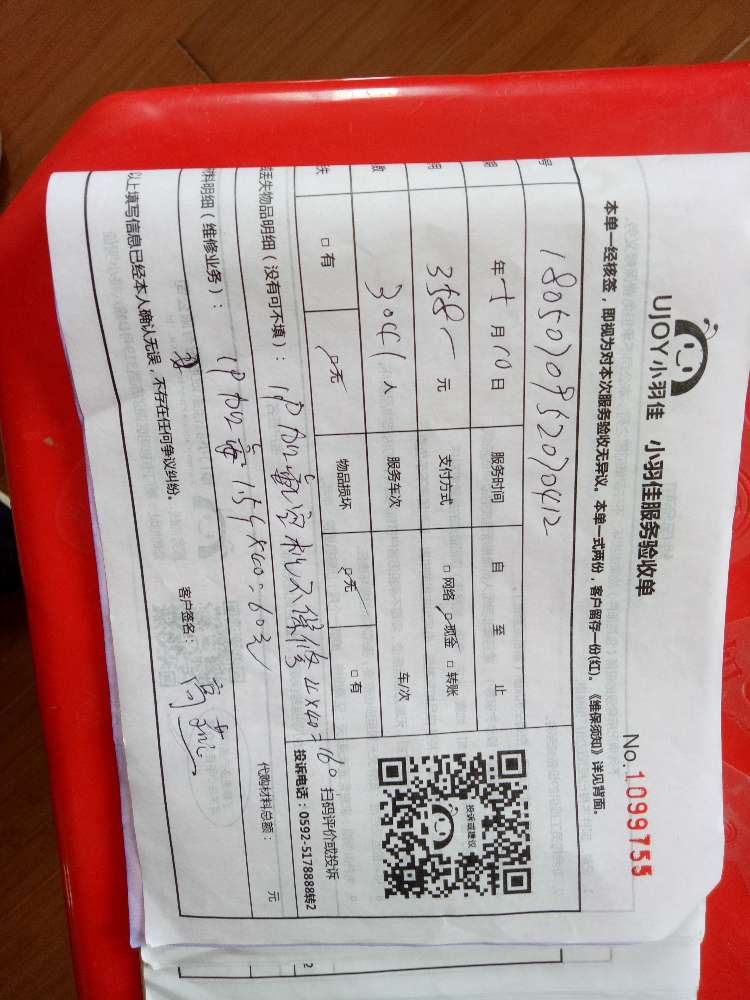 UJOY小羽佳 小羽佳服务验收单
No.1099755
本单一经核签，即视为对本次服务验收无异议。本单一式两份，客户留存一份(红)。《维保须知》详见背面。
号 1805070952070412
期 年 5 月 10 日 服务时间 自 至 止
用 358 元 支付方式 □网络 □现金 □转账
数 人 服务车次 车/次
失 □有 □无 物品损坏 □无 □有
投诉或建议
扫码评价或投诉
投诉电话：0592-5178888转2
丢失物品明细（没有可不填）： 1P 加氟 机不保修 4×40=160
料明细（维修业务）： 1P 加氟 1.5个×40=60元
代购材料总额： 元
以上填写信息已经本人确认无误，不存在任何争议纠纷。
客户签名：
2